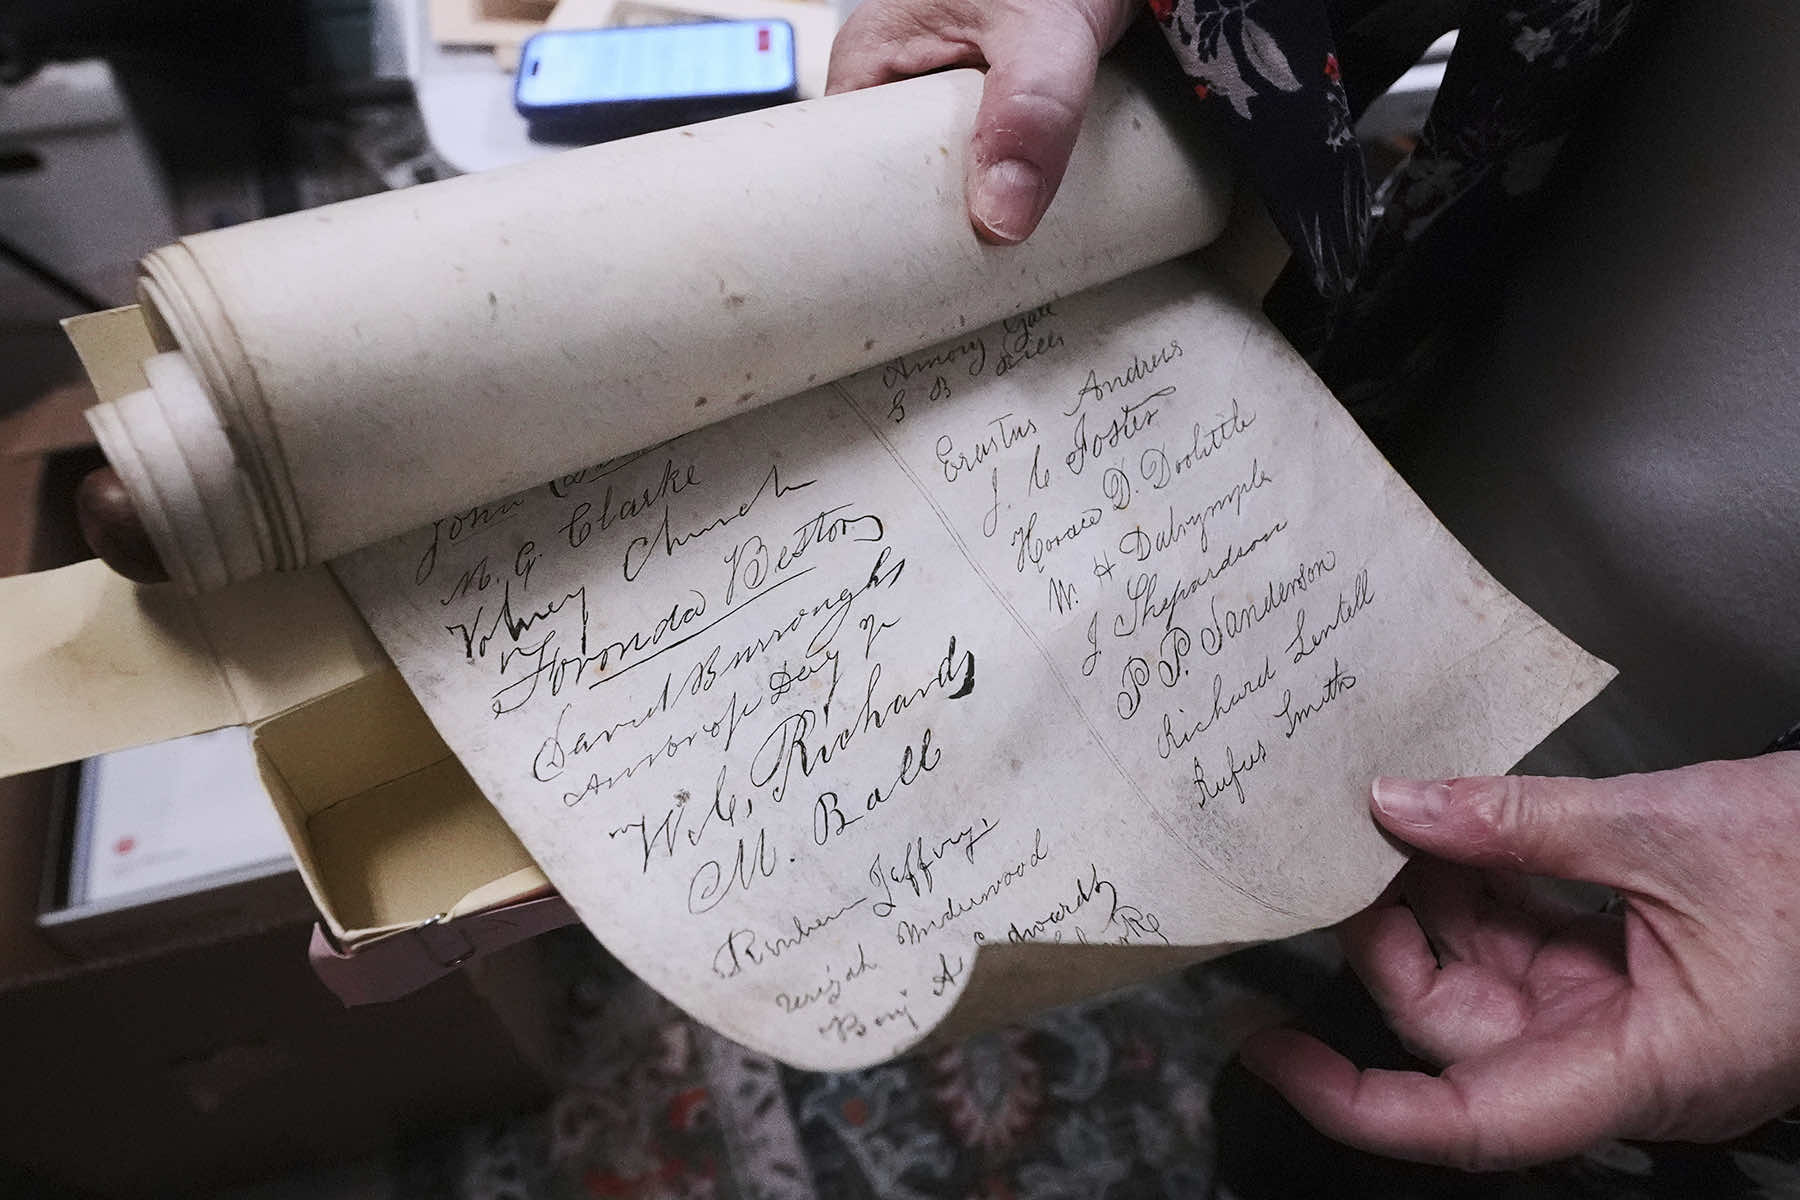 John
N. G. Clarke
Volney Church
Foronda Bestor
David Burroughs
Ambrose Day Jr
W. C. Richards
M. Ball
Reuben Jeffrey.
Uriah Underwood
Benj A Edwards
Amory Gale
G B
Erastus Andrews
J. C Foster
Horace D. Doolittle
W. H Dalrymple
J Shepardson
P. P. Sanderson
Richard Lentell
Rufus Smith